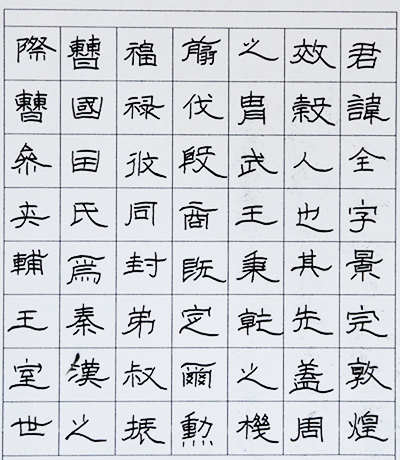 君諱全字景完敦煌
效穀人也其先蓋周
之胄武王秉乾之機
翦伐殷商既定爾勳
福禄攸同封弟叔振
曹國因氏焉秦漢之
際曹參夾輔王室世